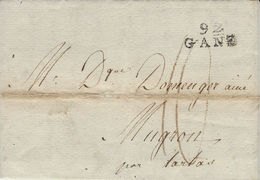 92
GAND
Mr. Dque Domenger ainé
Mugron
par Tartas